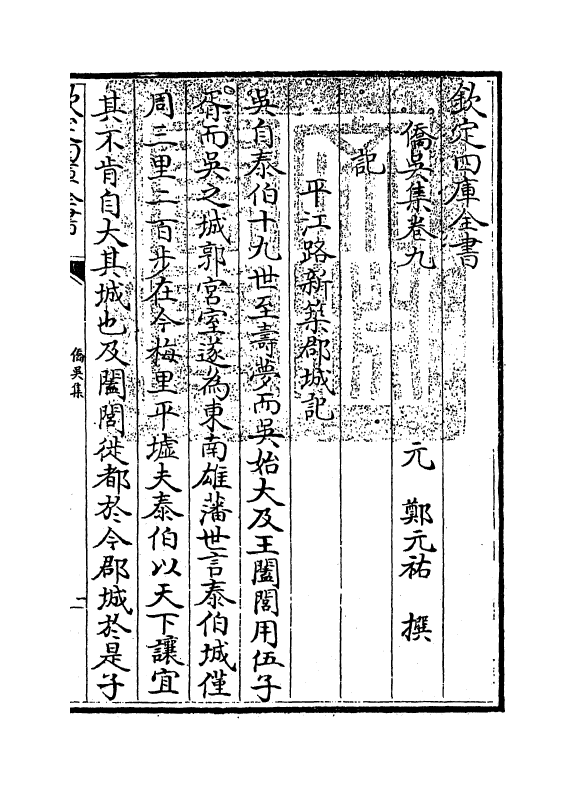 欽定四庫全書
僑吳集卷九
元 鄭元祐 撰
記
平江路新築郡城記
吳自泰伯十九世至壽夢而吳始大及王闔閭用伍子
胥而吳之城郭宮室遂為東南雄藩世言泰伯城僅
周三里二百步在今梅里平墟夫泰伯以天下讓宜
其不肯自大其城也及闔閭徙都於今郡城於是子
欽定四庫全書
僑吳集